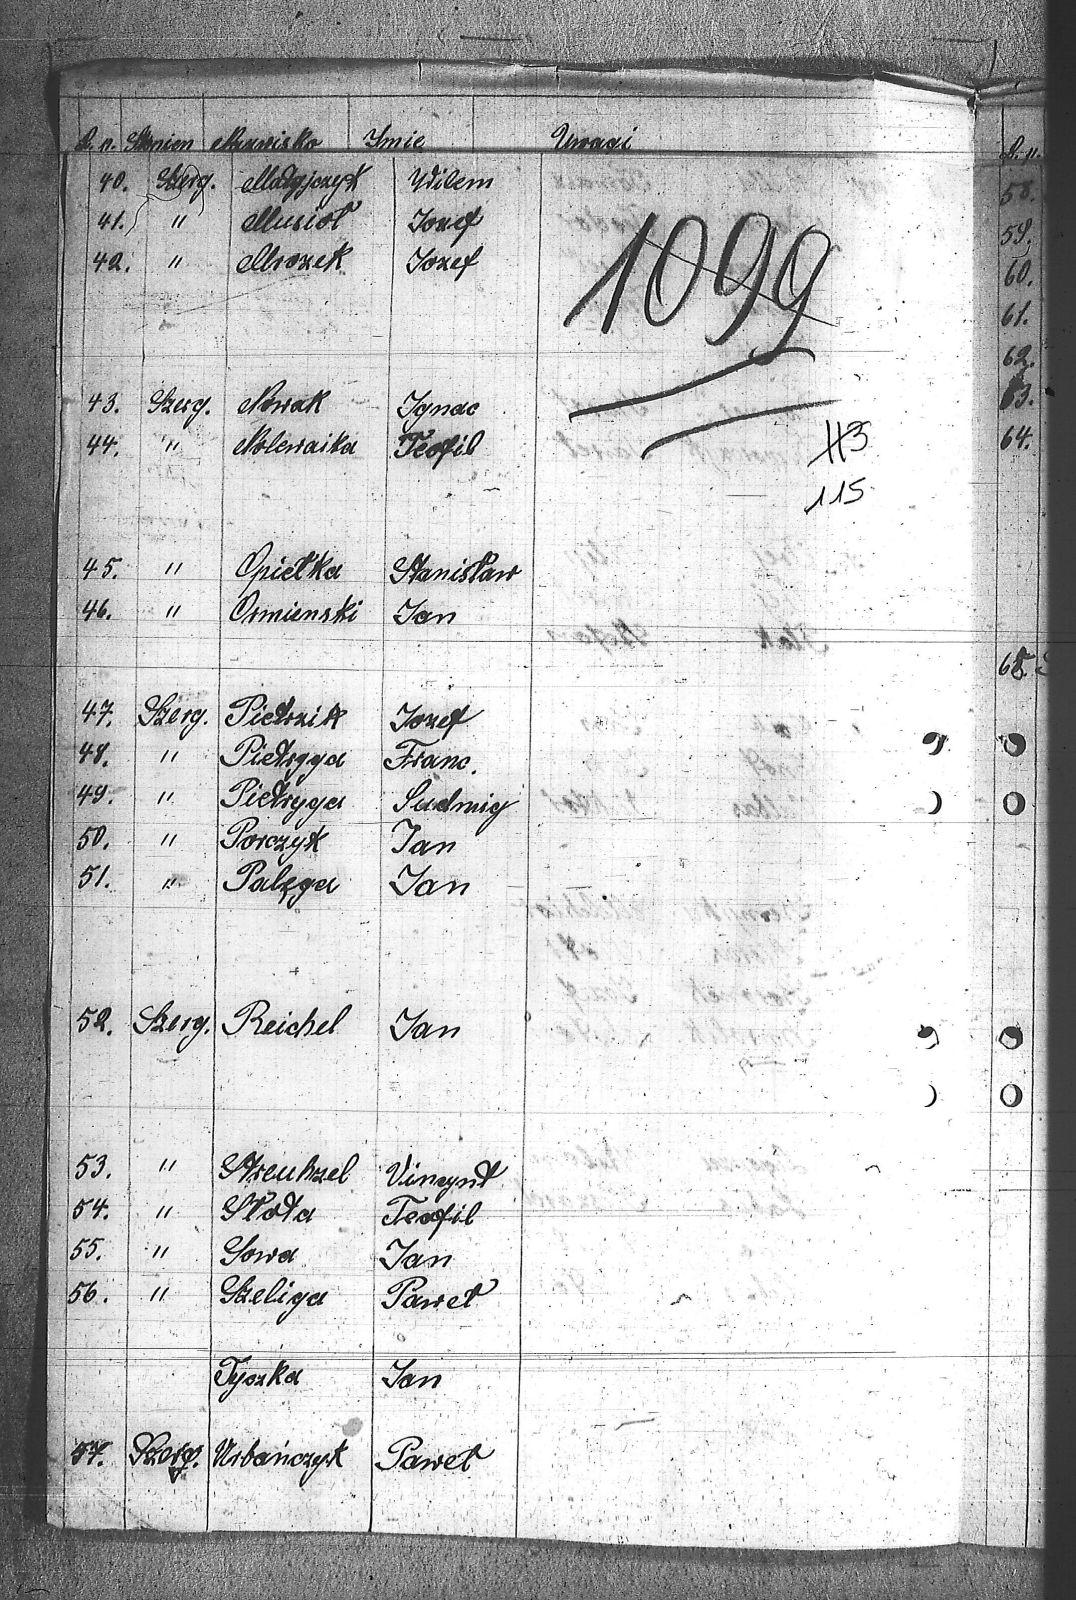 L. p. Stopien Nazwisko Imie Uwagi
40. Szerg. Matyjczyk Wilem
41. " Musioł Jozef
42. " Mrozek Jozef
1099
43. Szerg. Nowak Ignac
44. " Nolewaika Teofil
113
115
45. " Opiełka Stanisław
46. " Osmienski Jan
47. Szerg. Pietrzik Jozef
48. " Pietryga Franc.
49. " Pietryga Ludwig
50. " Porczyk Jan
51. " Palęga Jan
52. Szerg. Reichel Jan
53. " Strenczel Vincynt
54. " Słota Teofil
55. " Sowa Jan
56. " Szeliga Paweł
Tyszka Jan
57. Szerg. Urbańczyk Paweł
L. p.
58.
59.
60.
61.
62.
63.
64.
65.